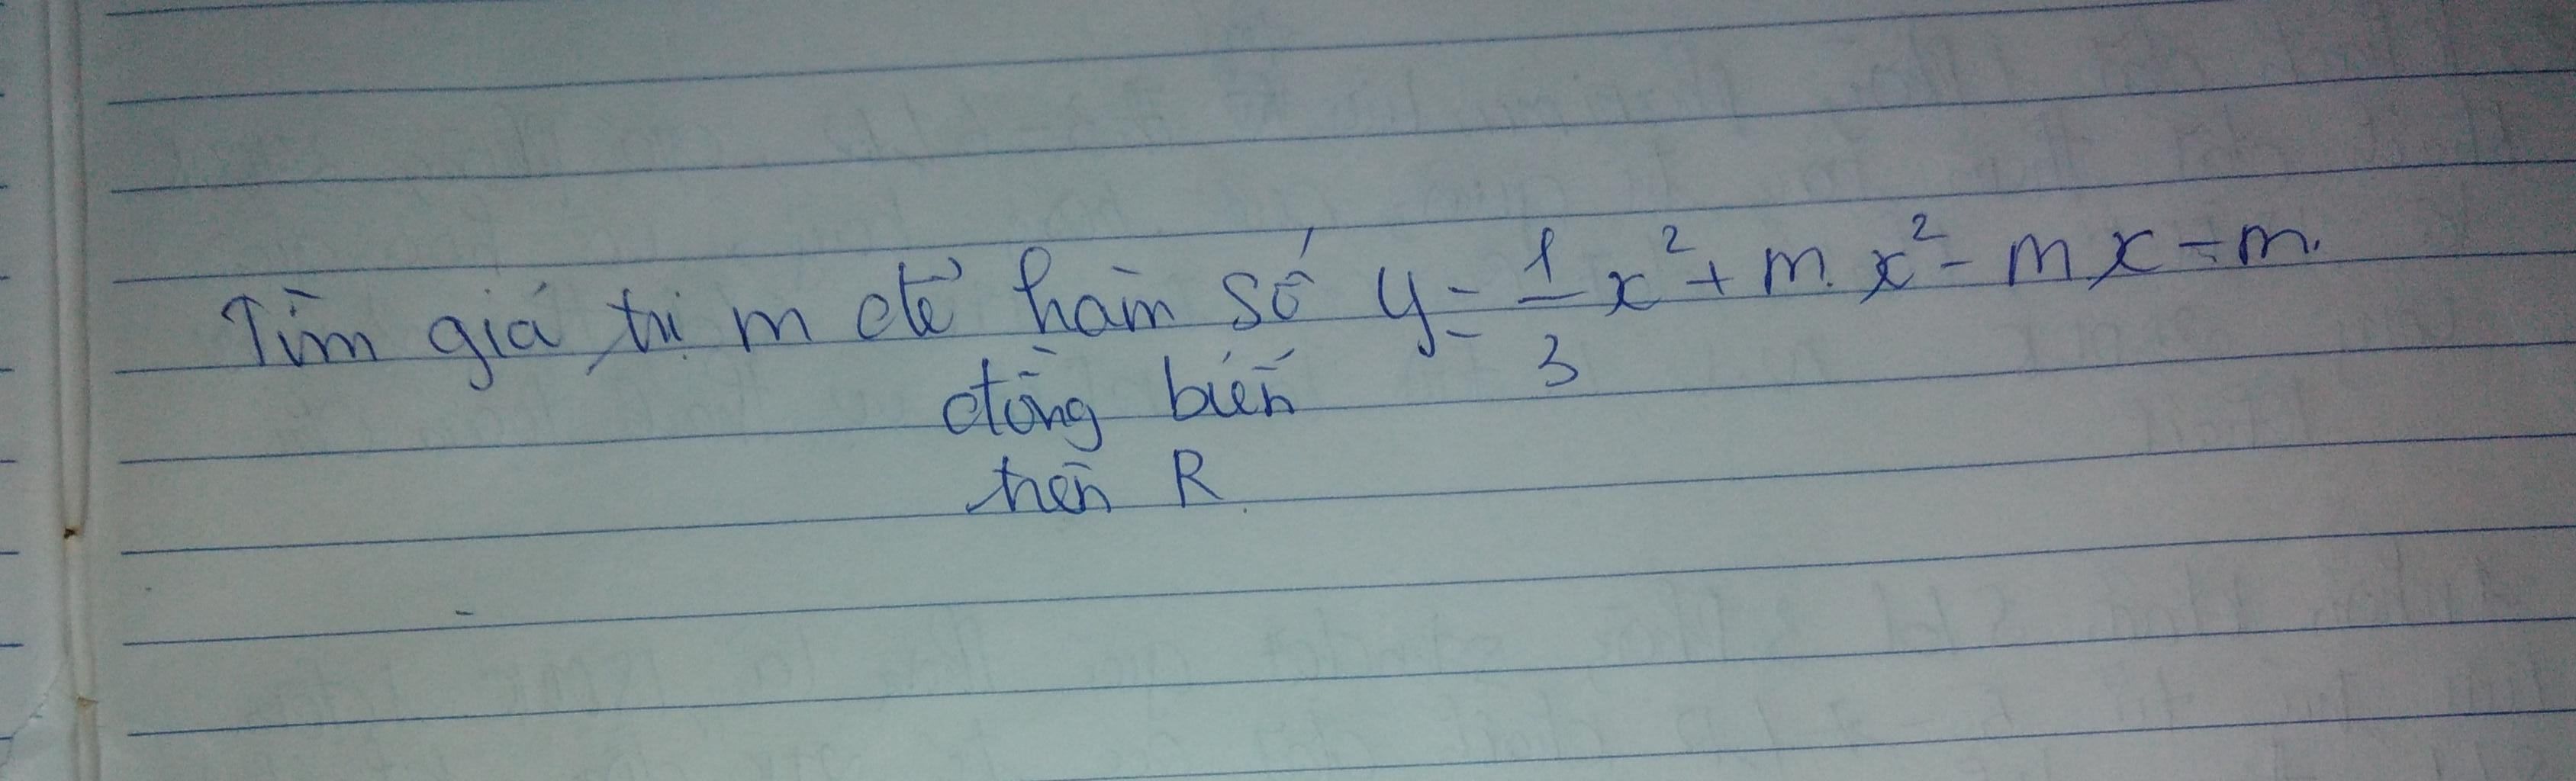 Tìm giá trị m để hàm số y = 1/3 x² + m x² - m x - m.
đồng biến
trên R